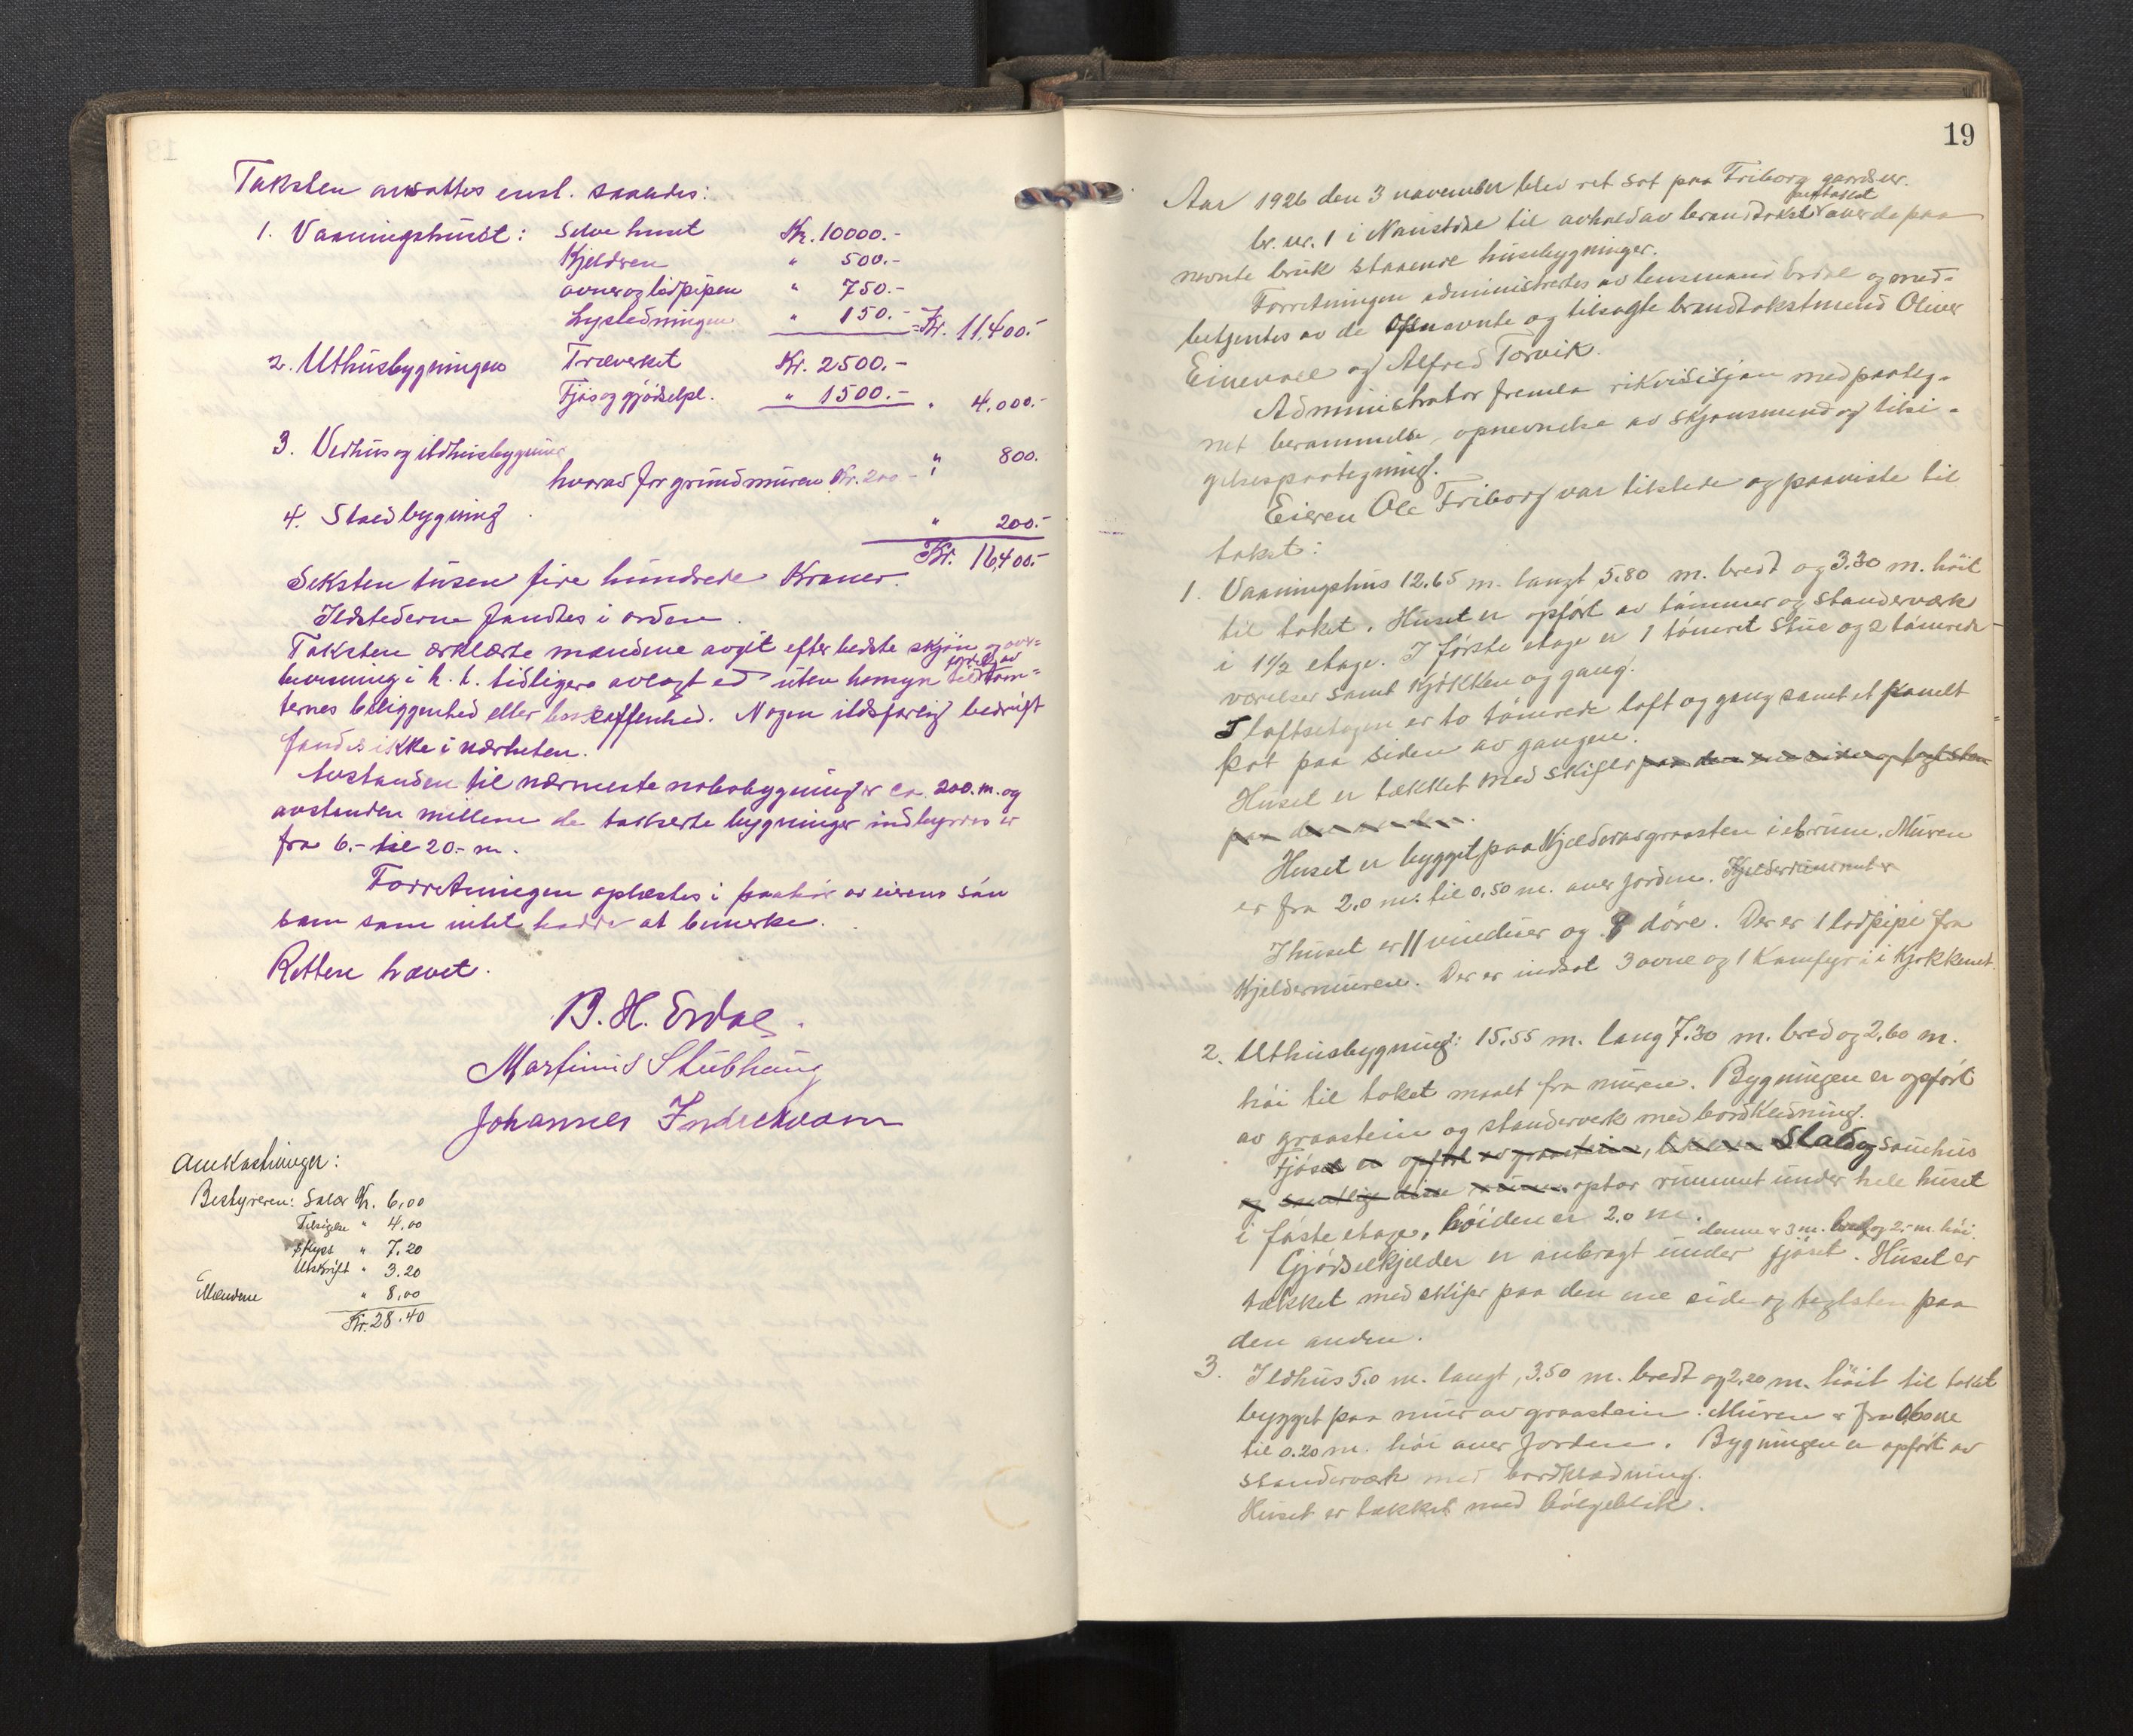 Taksten ansattes enst. saaledes:
1. Vaaningshuset: Selve huset Kr. 10000.-
Kjelderen " 500.-
ovner og lodpipen " 750.-
Lysledningen " 150.- = Kr. 11,400.-
2. Uthusbygningen Træverket Kr. 2500.-
Fjøs og gjødselpl. " 1500.- " 4,000.-
3. Vedhus og ildhusbygning
hvorav for grundmuren Kr. 200.- " 800.
4. Stallbygning " 200.-
Kr. 16,400.-
Seksten tusen fire hundrede Kroner.
Ildstederne fandtes i orden.
Taksten erklærte mændene avgit efter bedste skjøn og over-
bevisning i h. t. tidligere avlagt ed uten hensyn til tom-
ternes beliggenhed eller beskaffenhed. Nogen ildsfarlig bedrift
fandtes ikke i nærheten.
Avstanden til nærmeste nabobygning er ca. 200. m. og
avstanden millem de takserte bygninger indbyrdes er
fra 6.- til 20.- m.
Forretningen oplæstes i paahør av eierens søn
som intet hadde at bemerke.
Retten hævet.
B. H. Erdal.
Martinus Stubhaug
Johannes Indrehvam
Omkostninger:
Bestyreren: Salær Kr. 6,00
Tilsigelse " 4,00
Skyss " 7.20
Utskrift " 3.20
Mændene " 8,00
Kr. 28.40
19
Aar 1926 den 3 november blev ret sat paa Friborg gaards nr.
br. nr. 1 i Naustdal til avhold av brandtakst over de paa
nevnte bruk staaende husebygninger.
Forretningen administrertes av lensmand Erdal og med-
betjentes av de opnævnte og tilsagte brandtakstmend Oliver
Einevoll og Alfred Torvik.
Administrator fremla rikvisisjon med paateg-
net berammelse, opnevnelse av skjønsmend og tilsi-
gelsespaategning.
Eieren Ole Friborg var tilstede og paaviste til
takst:
1. Vaaningshus 12.65 m. langt 5.80 m. bredt og 3.30 m. høit
til taket. Huset er opført av tømmer og standerværk
i 1½ etage. I første etage er 1 tømret stue og 2 tømrede
værelser samt kjøkken og gang.
I loftsetagen er to tømrede loft og gang samt et panelt
kot paa siden av gangen.
Huset er tækket med skifer paa den ene side og taglsten
paa den anden.
Huset er bygget paa Kjeldermur graasten i ebrunn. Muren
er fra 2.0 m. til 0.50 m. over jorden. Kjelderrummet er
I huset er 11 vinduer og 9 døre. Der er 1 lodpipe fra
Kjeldermuren. Der er indsat 3 ovne og 1 Komfyr i Kjøkkenet.
2. Uthusbygning: 15.55 m. lang 7.30 m. bred og 2,60 m.
høi til taket maalt fra muren. Bygningen er opført
av graastein og standerverk med bordklædning.
Fjøset er opført av graastein, Stald og sauehus
optar rummet under hele huset
i føste etage, høiden er 2.0 m. denne er 3 m. bred og 2,- m. høi.
Gjødselkjelder er anbragt under fjøset. Huset er
tækket med skifer paa den ene side og teglsten paa
den anden.
3. Ildhus 5.0 m. langt, 3.50 m. bredt og 2,20 m. høit til taket
bygget paa mur av graastein. Muren er fra 0,60 m
til 0.20 m. høi over jorden. Bygningen er opført av
standerværk med bordklædning.
Huset er tækket med bølgeblik.